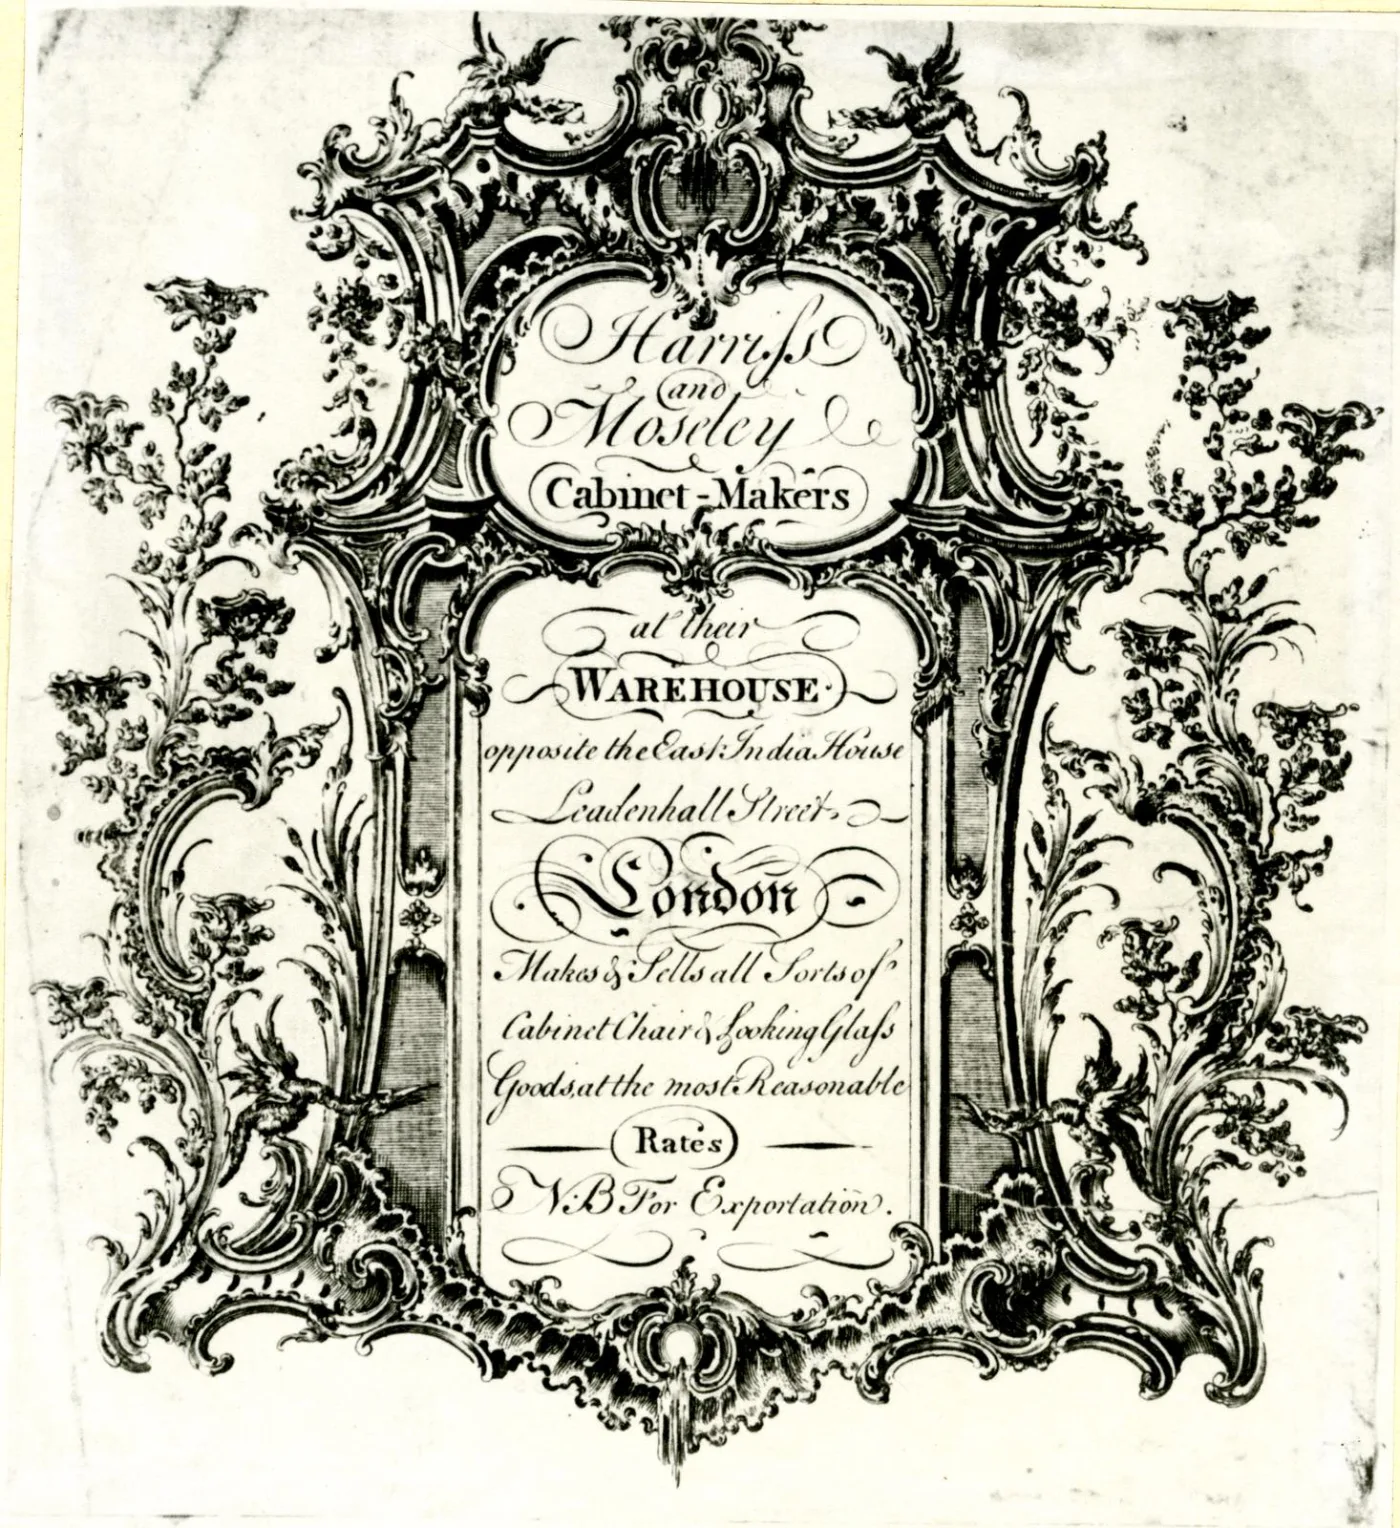 Harriſs
and
Moseley
Cabinet-Makers
at their
WAREHOUSE
opposite the East India House
Leadenhall Street
London
Makes & Sells all Sorts of
Cabinet Chair & Looking Glaſs
Goods, at the most Reasonable
Rates
N:B For Exportation.